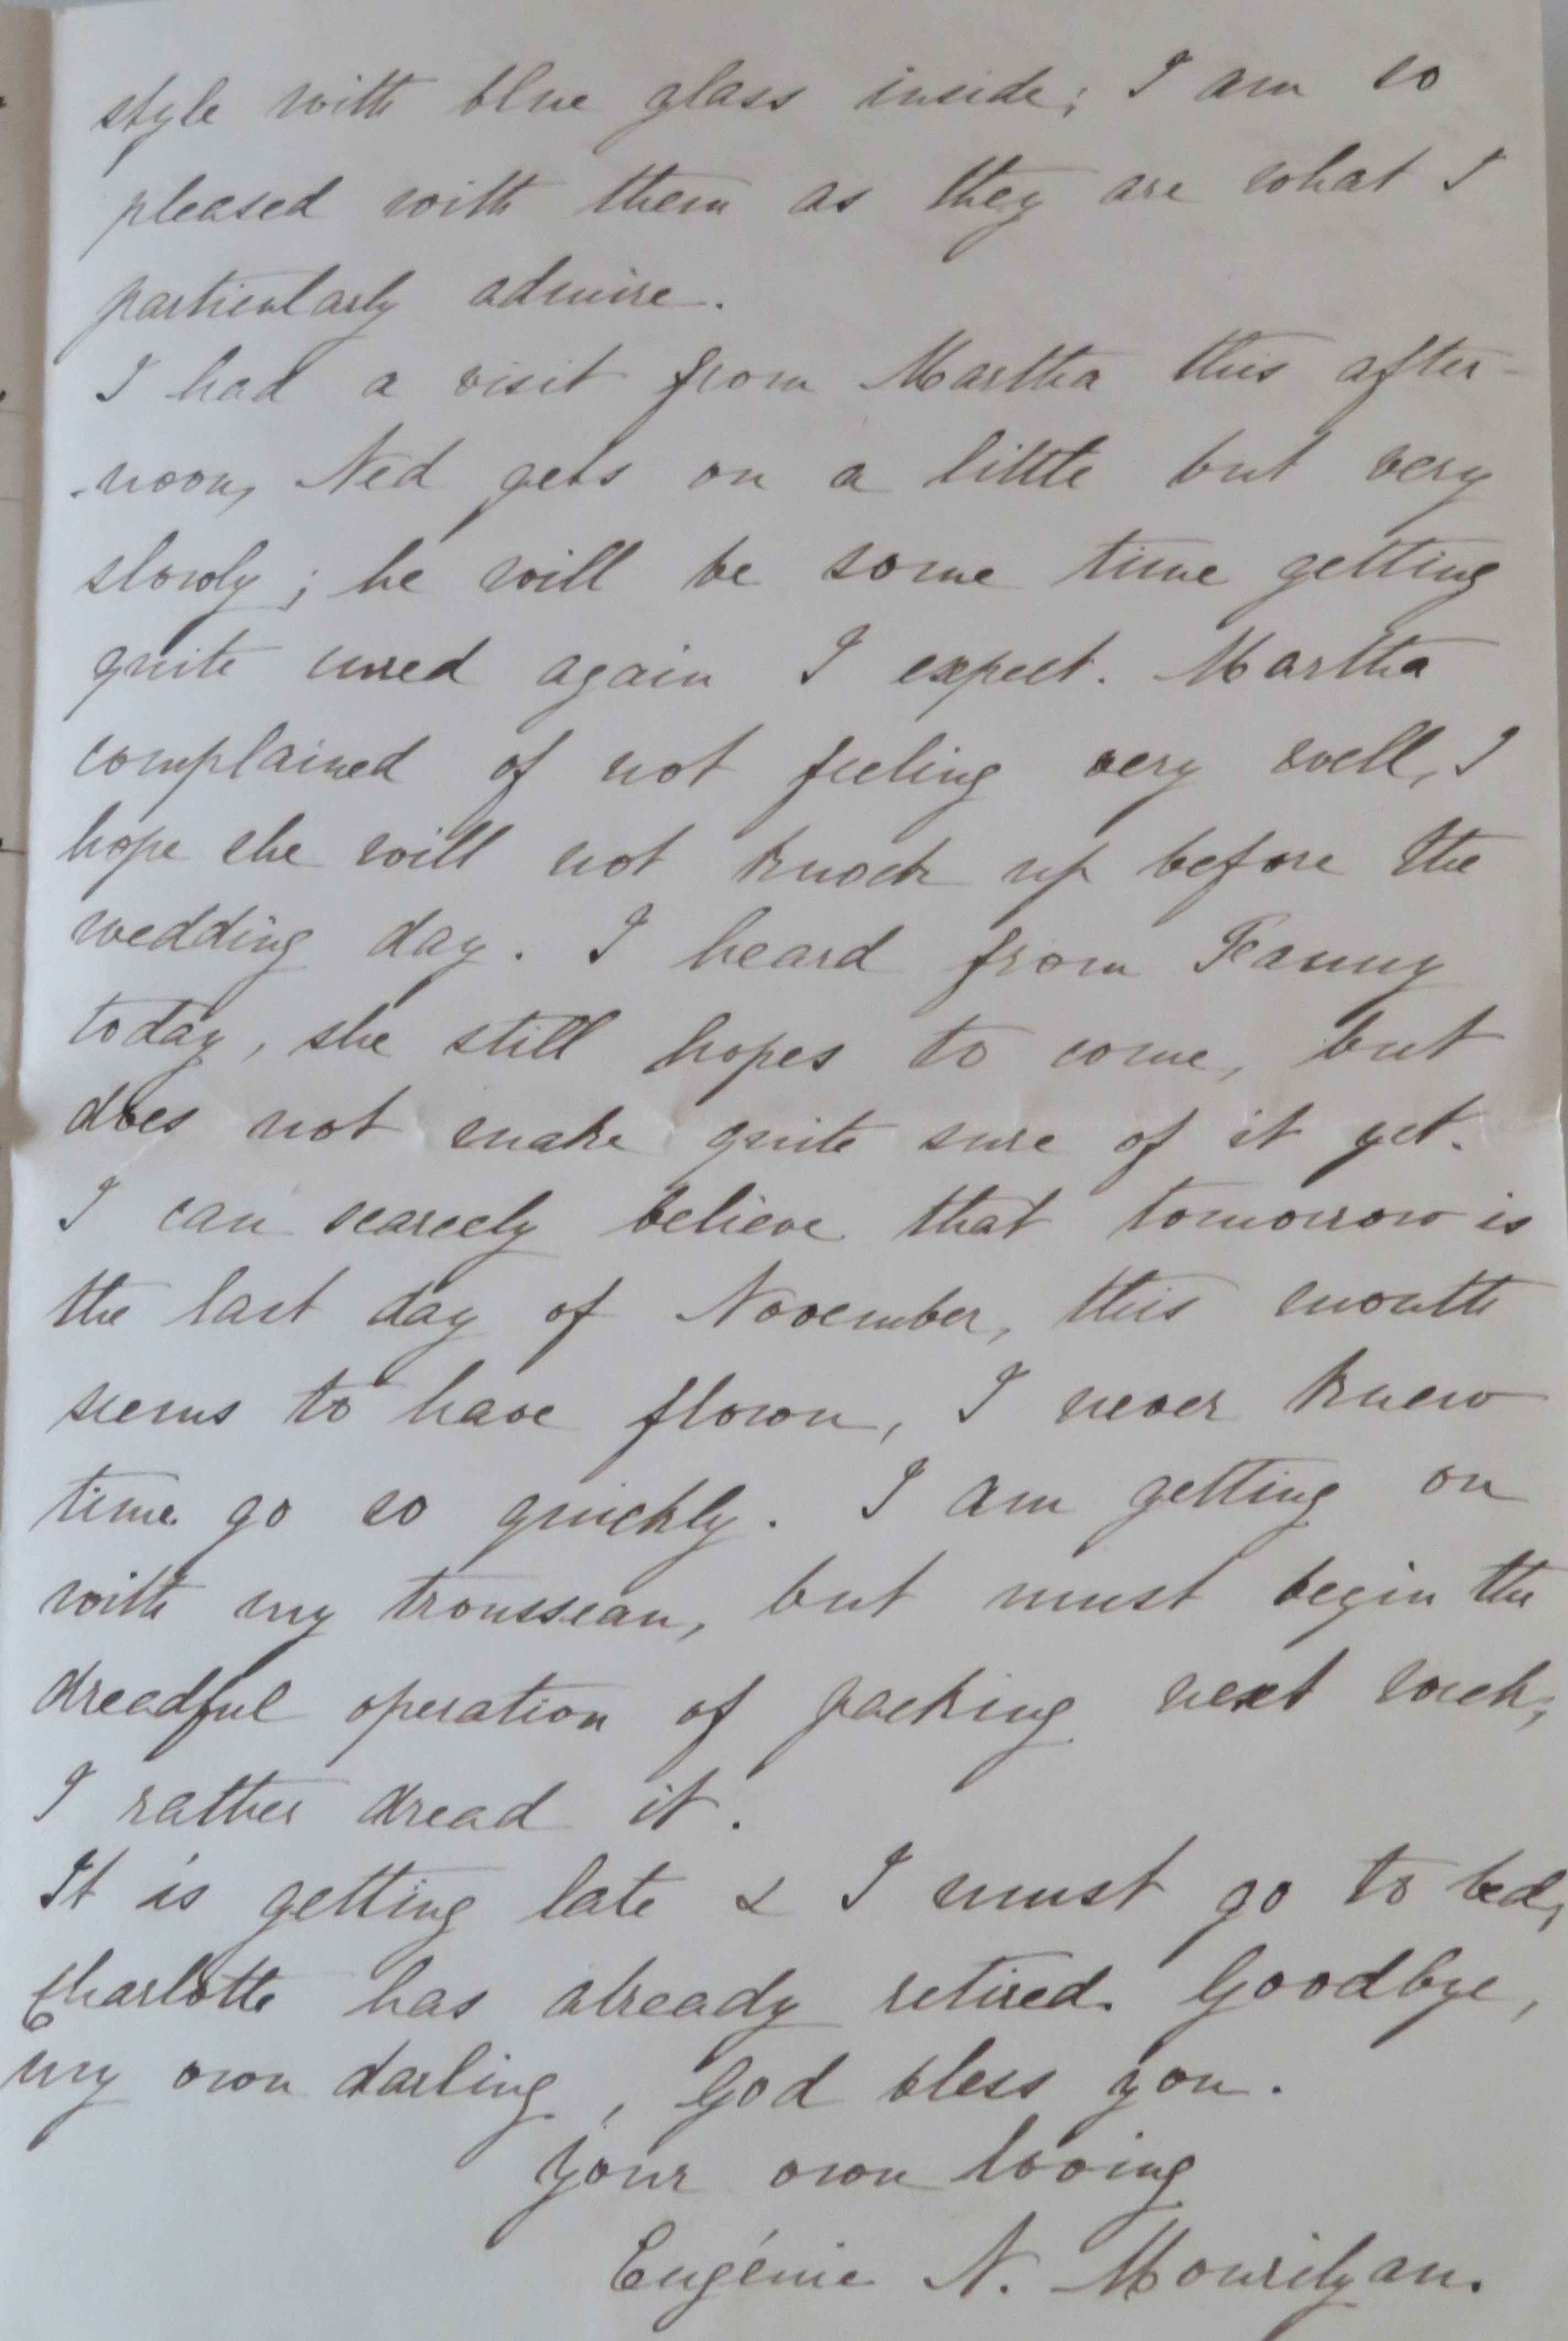 style with blue glass inside; I am so
pleased with them as they are what I
particularly admire.
I had a visit from Martha this after-
-noon, Ned gets on a little but very
slowly; he will be some time getting
quite cured again I expect. Martha
complained of not feeling very well, I
hope she will not knock up before the
wedding day. I heard from Fanny
today, she still hopes to come, but
does not make quite sure of it yet.
I can scarcely believe that tomorrow is
the last day of November, this month
seems to have flown, I never knew
time go so quickly. I am getting on
with my trousseau, but must begin the
dreadful operation of packing next week,
I rather dread it.
It is getting late & I must go to bed,
Charlotte has already retired. Goodbye,
my own darling, God bless you.
Your own loving
Eugénie N. Mourilyan.